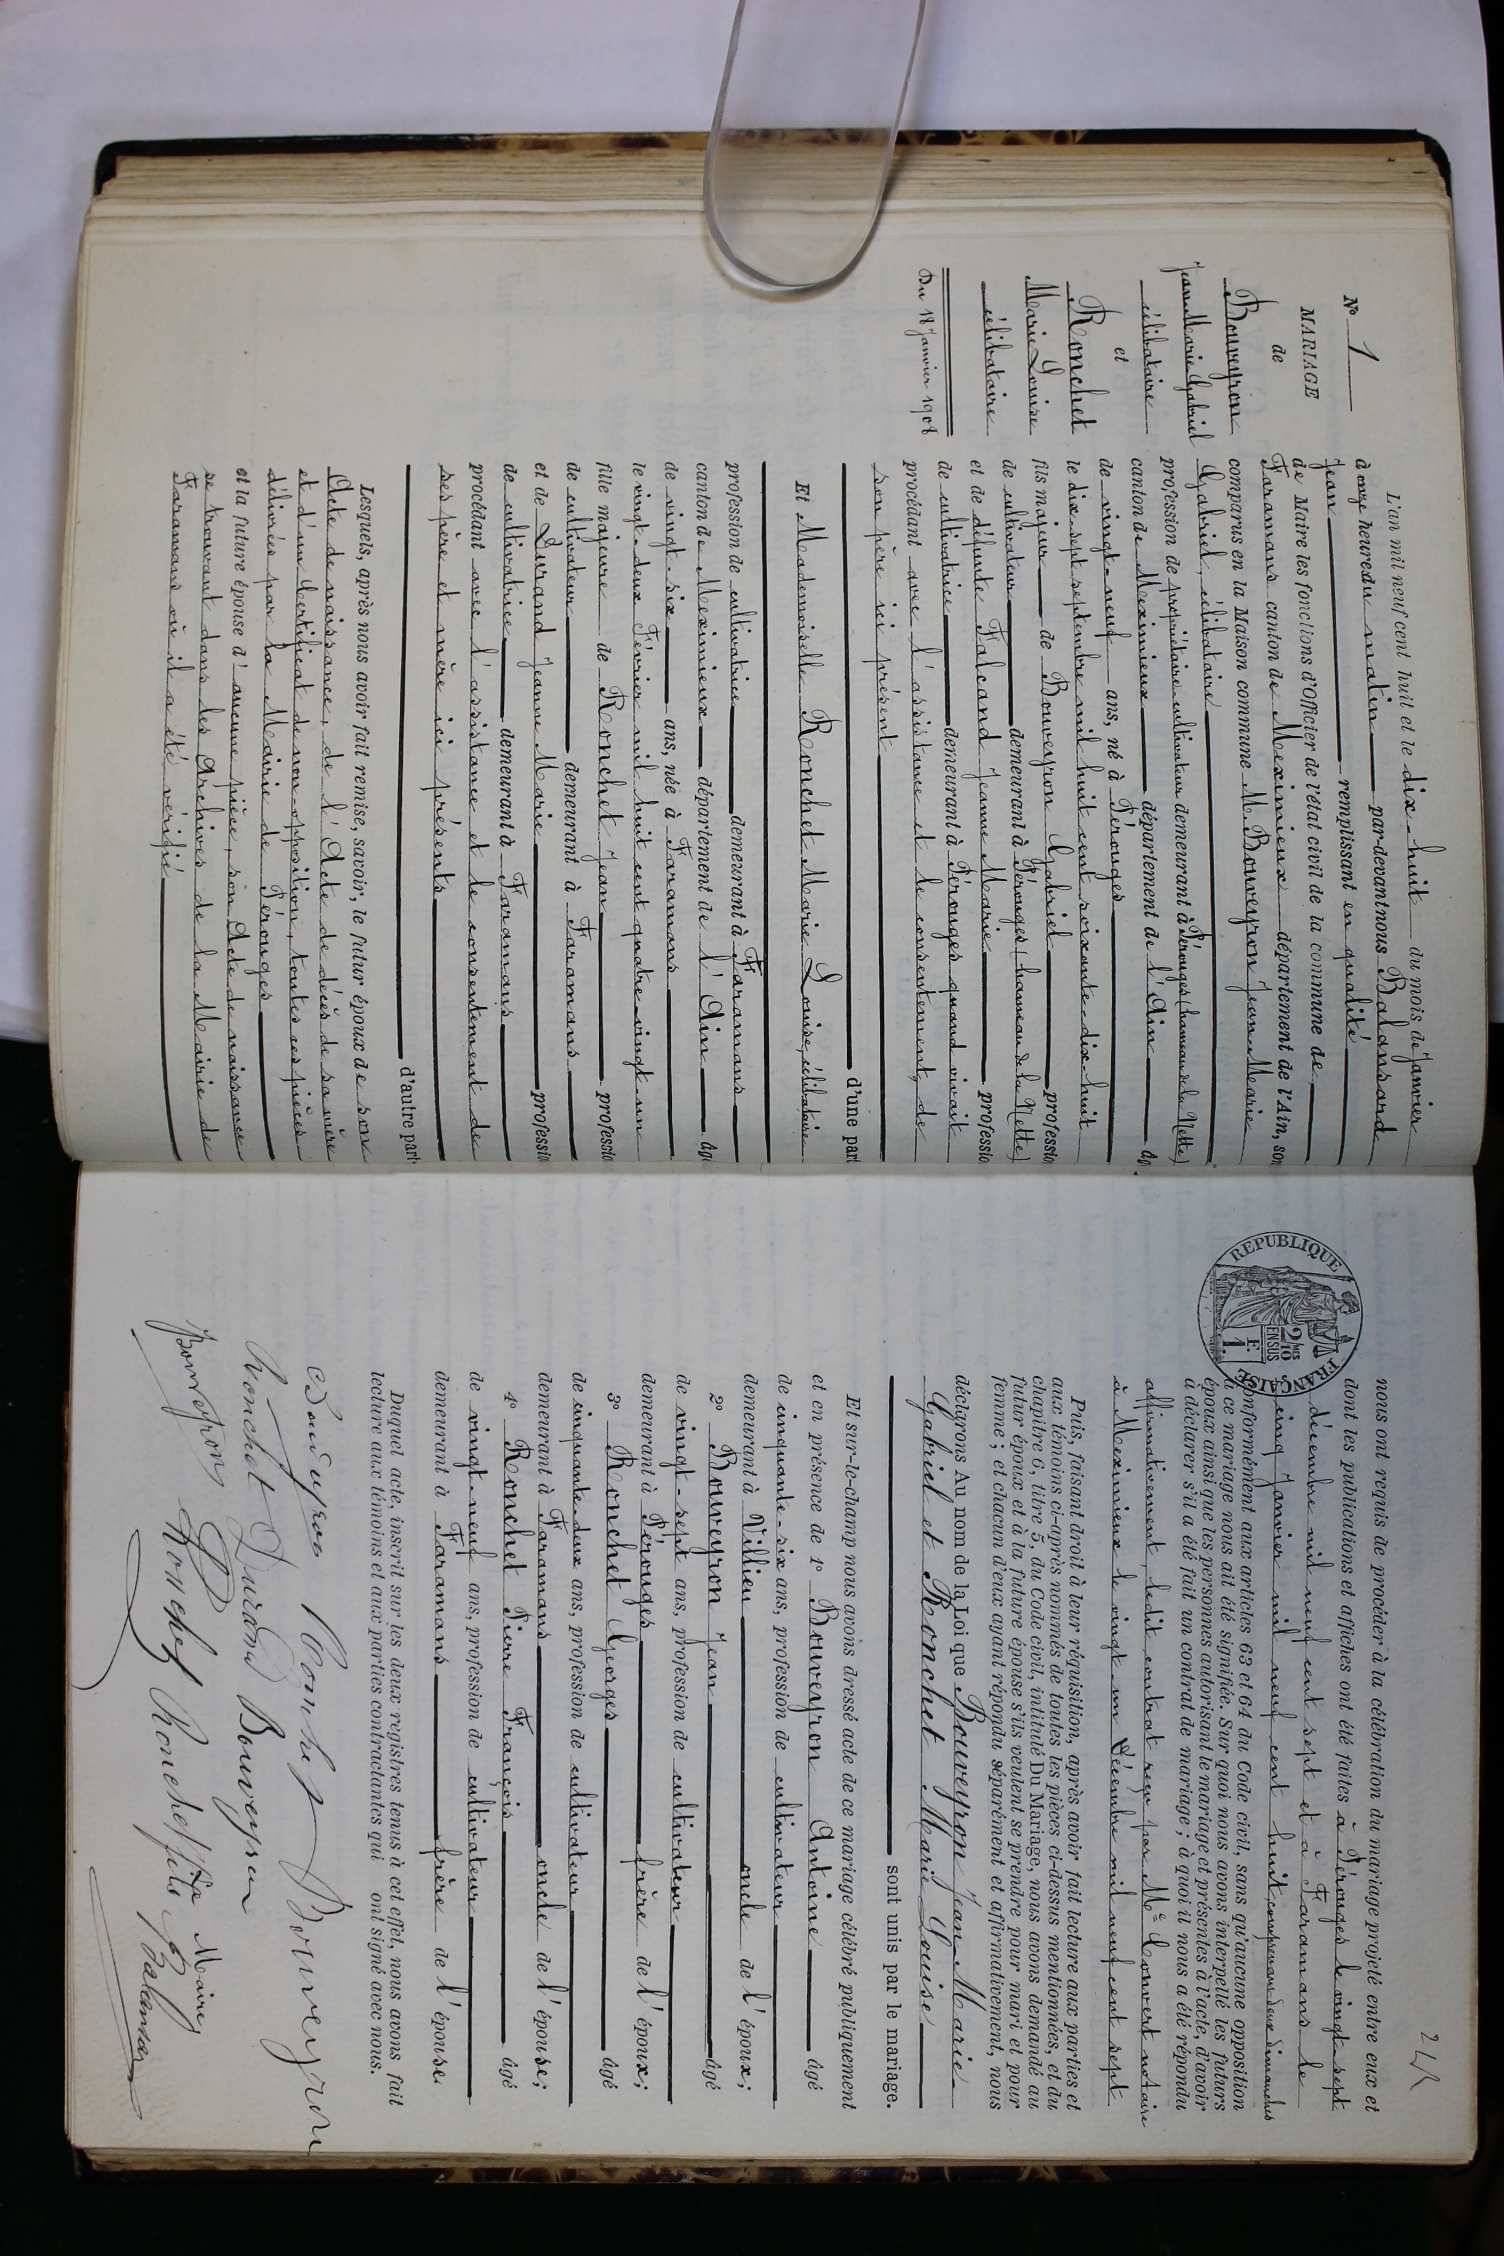 N° 1
MARIAGE
de
Bouveyron
Jean Marie Gabriel
célibataire
et
Ronchet
Marie Louise
célibataire
Du 18 Janvier 1908
L'an mil neuf cent huit et le dix-huit du mois de Janvier
à onze heures du matin par-devant nous Balansard
Jean remplissant en qualité
de Maire les fonctions d'Officier de l'état civil de la commune de
Faramans canton de Meximieux département de l'Ain, son
comparus en la Maison commune M. Bouveyron Jean-Marie
Gabriel, célibataire
profession de propriétaire cultivateur demeurant à Pérouges (hameau de la Nette)
canton de Meximieux département de l'Ain âg
de vingt-neuf ans, né à Pérouges
le dix-sept septembre mil huit cent soixante-dix-huit
fils majeur de Bouveyron Gabriel professio
de cultivateur demeurant à Pérouges (hameau de la Nette)
et de défunte Falcand Jeanne Marie professio
de cultivatrice demeurant à Pérouges quand vivait
procédant avec l'assistance et le consentement de
son père ici présent
d'une part
Et Mademoiselle Ronchet Marie Louise, célibataire
profession de cultivatrice demeurant à Faramans
canton de Meximieux département de l'Ain âgé
de vingt-six ans, née à Faramans
le vingt-deux Février mil huit cent quatre-vingt un
fille majeure de Ronchet Jean professio
de cultivateur demeurant à Faramans
et de Durand Jeanne Marie professio
de cultivatrice demeurant à Faramans
procédant avec l'assistance et le consentement de
ses père et mère ici présents
d'autre part
Lesquels, après nous avoir fait remise, savoir, le futur époux de son
Acte de naissance, de l'Acte de décès de sa mère
et d'un Certificat de non-opposition, toutes ces pièces
délivrées par la Mairie de Pérouges
et la future épouse d'aucune pièce, son Acte de naissance
se trouvant dans les Archives de la Mairie de
Faramans où il a été vérifié
nous ont requis de procéder à la célébration du mariage projeté entre eux et
dont les publications et affiches ont été faites à Pérouges le vingt-sept
décembre mil neuf cent sept et à Faramans le
cinq Janvier mil neuf cent huit comprenant deux dimanches
conformément aux articles 63 et 64 du Code civil, sans qu'aucune opposition
à ce mariage nous ait été signifiée. Sur quoi nous avons interpellé les futurs
époux ainsi que les personnes autorisant le mariage et présentes à l'acte, d'avoir
à déclarer s'il a été fait un contrat de mariage ; à quoi il nous a été répondu
affirmativement, ledit contrat reçu par Me Convert notaire
à Meximieux le vingt un Décembre mil neuf cent sept
Puis, faisant droit à leur réquisition, après avoir fait lecture aux parties et
aux témoins ci-après nommés de toutes les pièces ci-dessus mentionnées, et du
chapitre 6, titre 5, du Code civil, intitulé Du Mariage, nous avons demandé au
futur époux et à la future épouse s'ils veulent se prendre pour mari et pour
femme ; et chacun d'eux ayant répondu séparément et affirmativement, nous
déclarons Au nom de la Loi que Bouveyron Jean-Marie
Gabriel et Ronchet Marie Louise
sont unis par le mariage.
Et sur-le-champ nous avons dressé acte de ce mariage célébré publiquement
et en présence de 1° Bouveyron Antoine âgé
de cinquante-six ans, profession de cultivateur
demeurant à Villieu oncle de l'époux ;
2° Bouveyron Jean âgé
de vingt-sept ans, profession de cultivateur
demeurant à Pérouges frère de l'époux ;
3° Ronchet Georges âgé
de cinquante-deux ans, profession de cultivateur
demeurant à Faramans oncle de l'épouse ;
4° Ronchet Pierre François âgé
de vingt-neuf ans, profession de cultivateur
demeurant à Faramans frère de l'épouse.
Duquel acte, inscrit sur les deux registres tenus à cet effet, nous avons fait
lecture aux témoins et aux parties contractantes qui ont signé avec nous.
Ronchet Bouveyron
Ronchet Durand Bouveyron
Bouveyron Ronchet Ronchet fils Le Maire
Balansard
REPUBLIQUE FRANÇAISE
2/10 EN SUS
1 F.